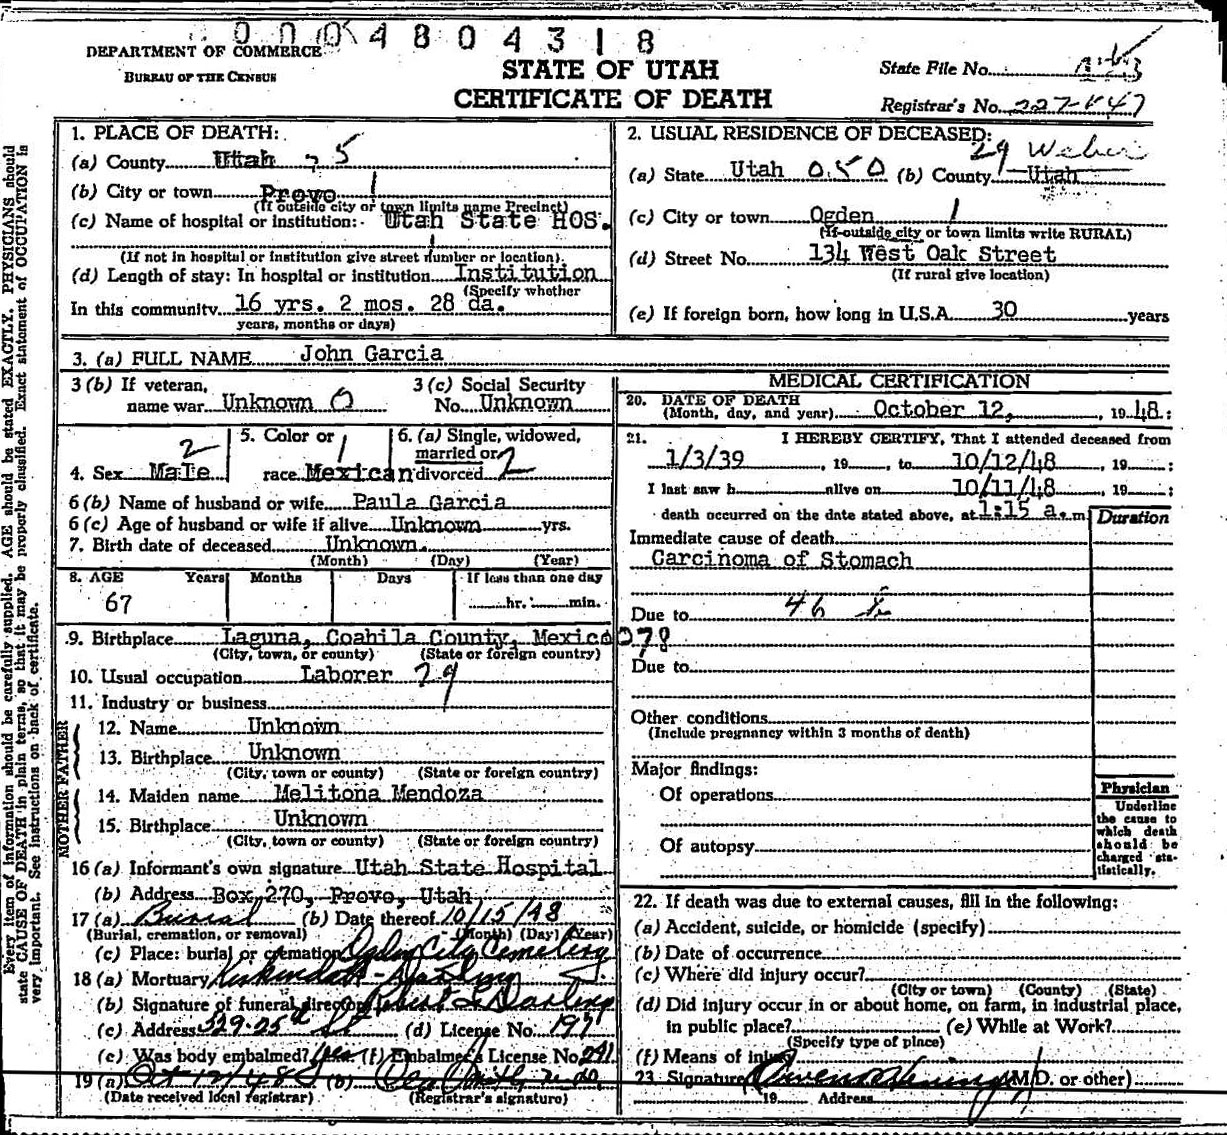 0004804318
DEPARTMENT OF COMMERCE
BUREAU OF THE CENSUS
STATE OF UTAH
CERTIFICATE OF DEATH
State File No.
Registrar's No.
1. PLACE OF DEATH:
(a) County Utah 25
(b) City or town Provo 1
(If outside city or town limits name Precinct)
(c) Name of hospital or institution: Utah State HOS.
1
(If not in hospital or institution give street number or location).
(d) Length of stay: In hospital or institution Institution
(Specify whether
In this community 16 yrs. 2 mos. 28 da.
years, months or days)
2. USUAL RESIDENCE OF DECEASED:
29 Weber
(a) State Utah 050 (b) County Utah
(c) City or town Ogden 1
(If outside city or town limits write RURAL)
(d) Street No. 134 West Oak Street
(If rural give location)
(e) If foreign born, how long in U.S.A. 30 years
3. (a) FULL NAME John Garcia
3 (b) If veteran, name war Unknown 0
3 (c) Social Security No. Unknown
4. Sex Male 2
5. Color or race Mexican 1
6. (a) Single, widowed, married or divorced 2
6 (b) Name of husband or wife Paula Garcia
6 (c) Age of husband or wife if alive Unknown yrs.
7. Birth date of deceased Unknown.
(Month) (Day) (Year)
8. AGE Years Months Days If less than one day
67 hr. min.
9. Birthplace Laguna, Coahila County, Mexico 078
(City, town, or county) (State or foreign country)
10. Usual occupation Laborer 79
11. Industry or business
FATHER
12. Name Unknown
13. Birthplace Unknown
(City, town or county) (State or foreign country)
MOTHER
14. Maiden name Melitona Mendoza
15. Birthplace Unknown
(City, town or county) (State or foreign country)
16 (a) Informant's own signature Utah State Hospital
(b) Address Box 270, Provo, Utah
17 (a) Burial (b) Date thereof 10/15/48
(Burial, cremation, or removal) (Month) (Day) (Year)
(c) Place: burial or cremation Ogden City Cemetery
18 (a) Mortuary
(b) Signature of funeral director Robert L Darling
(c) Address 329-25th St (d) License No. 197
(e) Was body embalmed? Yes (f) Embalmer's License No. 291
19 (a) Oct 12/48 (b)
(Date received local registrar) (Registrar's signature)
MEDICAL CERTIFICATION
20. DATE OF DEATH
(Month, day, and year) October 12, , 1948:
21. I HEREBY CERTIFY, That I attended deceased from
1/3/39 , 19 , to 10/12/48 , 19 ;
I last saw h alive on 10/11/48 , 19 ;
death occurred on the date stated above, at 1:15 a. m
Duration
Immediate cause of death
Carcinoma of Stomach
Due to 46
Due to
Other conditions
(Include pregnancy within 3 months of death)
Major findings:
Of operations
Of autopsy
Physician
Underline
the cause to
which death
should be
charged sta-
tistically.
22. If death was due to external causes, fill in the following:
(a) Accident, suicide, or homicide (specify)
(b) Date of occurrence
(c) Where did injury occur?
(City or town) (County) (State)
(d) Did injury occur in or about home, on farm, in industrial place,
in public place? (e) While at Work?
(Specify type of place)
(f) Means of injury
23. Signature (M.D. or other)
19 Address
Every item of information should be carefully supplied. AGE should be stated EXACTLY. PHYSICIANS should
state CAUSE OF DEATH in plain terms, so that it may be properly classified. Exact statement of OCCUPATION is
very important. See instructions on back of certificate.